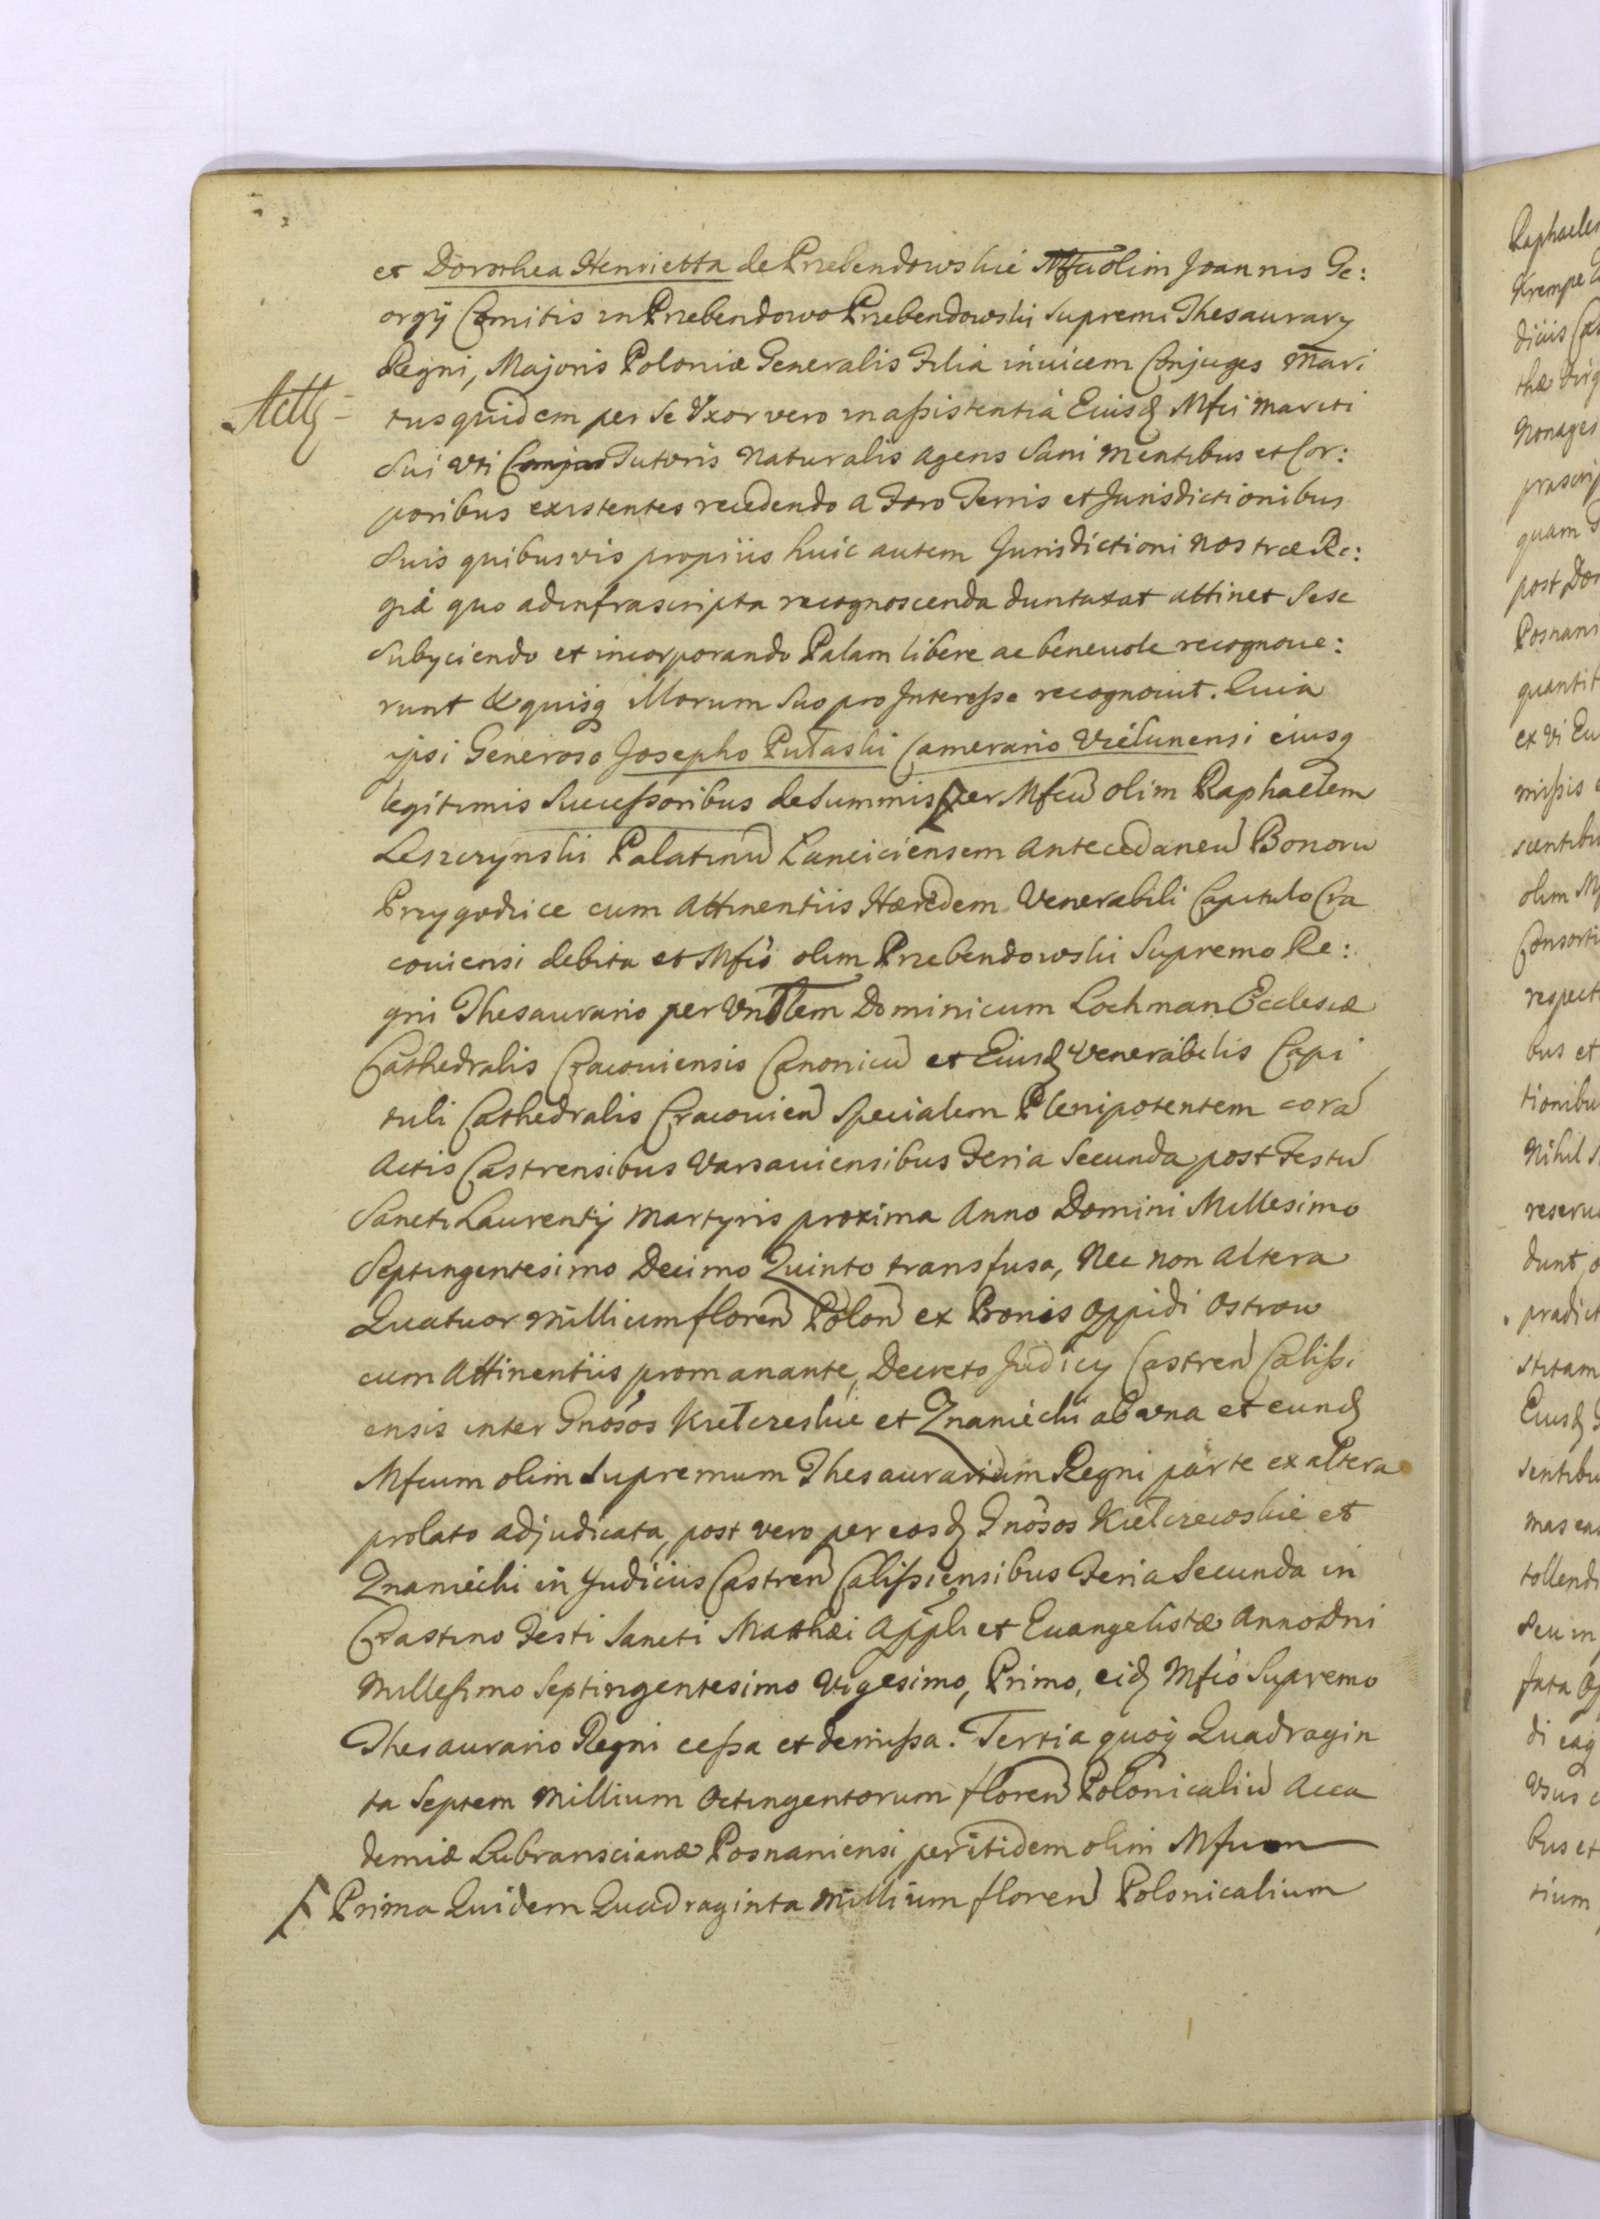 et Dorothea Henrietta de Przebendowskie Mfci olim Joannis Ge:
orgÿ Comitis in Przebendowo Przebendowski Supremi Thesaurary
Regni, Majoris Poloniæ Generalis Filia inuicem Conjuges Mari
tus quidem per Se Uxor vero in aßistentiâ Eiusq Mfci Mariti
Sui Uti Tutoris Naturalis agens Sani Mentibus et Cor:
poribus existentes recedendo a Foro Terris et Jurisdictionibus
Suis quibusvis propiis huic autem Jurisdictioni Nostræ Re:
giâ quo ad infrascripta recognoscenda duntaxat attinet Sese
Subyciendo et incorporando Palam libere ac beneuole recognoue:
runt & quisq Morum Suo pro Interesse recognouit. Quia
ipsi Generoso Josepho Pułaski Camerario Vielunensi eiusq
legitimis Succeßoribus de Summis per Mfcū olim Raphaelem
Leszczynski Palatinū Lanciciensem Antecedaneū Bonorū
Przygodzice cum Attinentiis Hæredem Venerabili Capitulo Cra
couiensi debita et Mfcò olim Przebendowski Supremo Re:
gni Thesaurario per Undlem Dominicum Lochman Ecclesiæ
Cathedralis Cracouiensis Canonicū et Eiusq Venerabilis Capi
tuli Cathedralis Cracouien Specialem Plenipotentem corā
Actis Castrensibus Varsauiensibus Feria Secunda post Festū
Sancti Laurentÿ Martyris proxima Anno Domini Millesimo
Septingentesimo Decimo Quinto transfusa, Nec non Altera
Quatuor Millium floren Polon ex Bonis Oppidi Ostrow
cum Attinentiis promanante, Decreto Judicy Castren Calißi
ensis inter Gnosos Kiełczeskie et Znamiechi ab una et eunq
Mfcum olim Supremum Thesaurarium Regni parte ex altera
prolato adjudicata, post vero per eosq Gnosos Kiełczewskie et
Znamiechi in Judiciis Castren Calißiensibus Feria Secunda in
Crastino Festi Sancti Matthæi Appli et Euangelistæ Anno Dni
Milleßimo Septingentesimo Vigesimo, Primo, eiq Mfcò Supremo
Thesaurario Regni ceßa et demißa. Tertia quoq Quadragin
ta Septem Millium Octingentorum floren Polonicaliū Acca
demiæ Lubranscianæ Posnaniensi per itidem olim Mfcum
Prima Quidem Quadraginta Millium floren Polonicalium
Raphaelem
Krempe
diciis Ca
thæ Virg
Nonages
præscrip
quam
post Dom
Posnani
quantit
ex Vi Eu
mißis
scentibu
olim Mf
Consorti
respect
bus et
tionibu
Nihil S
reseru
dunt
prædict
stitam
Eiusq
sentibu
mas eas
tollendi
Seu in
fata
di eaq
Usus
bus et
tium